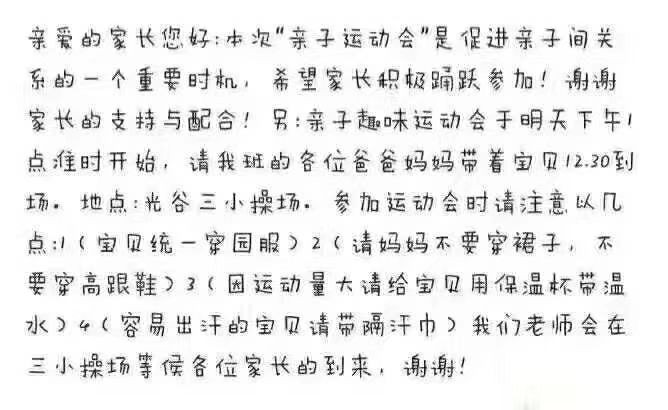 亲爱的家长您好:本次“亲子运动会”是促进亲子间关
系的一个重要时机，希望家长积极踊跃参加！谢谢
家长的支持与配合！另:亲子趣味运动会于明天下午1
点准时开始，请我班的各位爸爸妈妈带着宝贝12.30到
场。地点:光谷三小操场。参加运动会时请注意以几
点:1(宝贝统一穿园服)2(请妈妈不要穿裙子，不
要穿高跟鞋)3(因运动量大请给宝贝用保温杯带温
水)4(容易出汗的宝贝请带隔汗巾)我们老师会在
三小操场等侯各位家长的到来，谢谢！